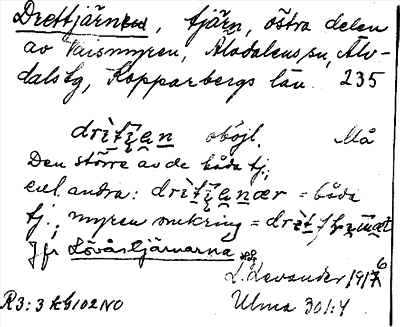 Drettjärnen, tjärn, östra delen
av Vaismyren, Älvdalens sn, Älv-
dals tg, Kopparbergs län. 235
oböjl. Må
Den större av de båda tj.;
enl. andra: = båda
tj.; myren omkring =
Jfr Lövåstjärnarna
L. Levander 1916
R3: 3 kG102NO Ulma 301:4